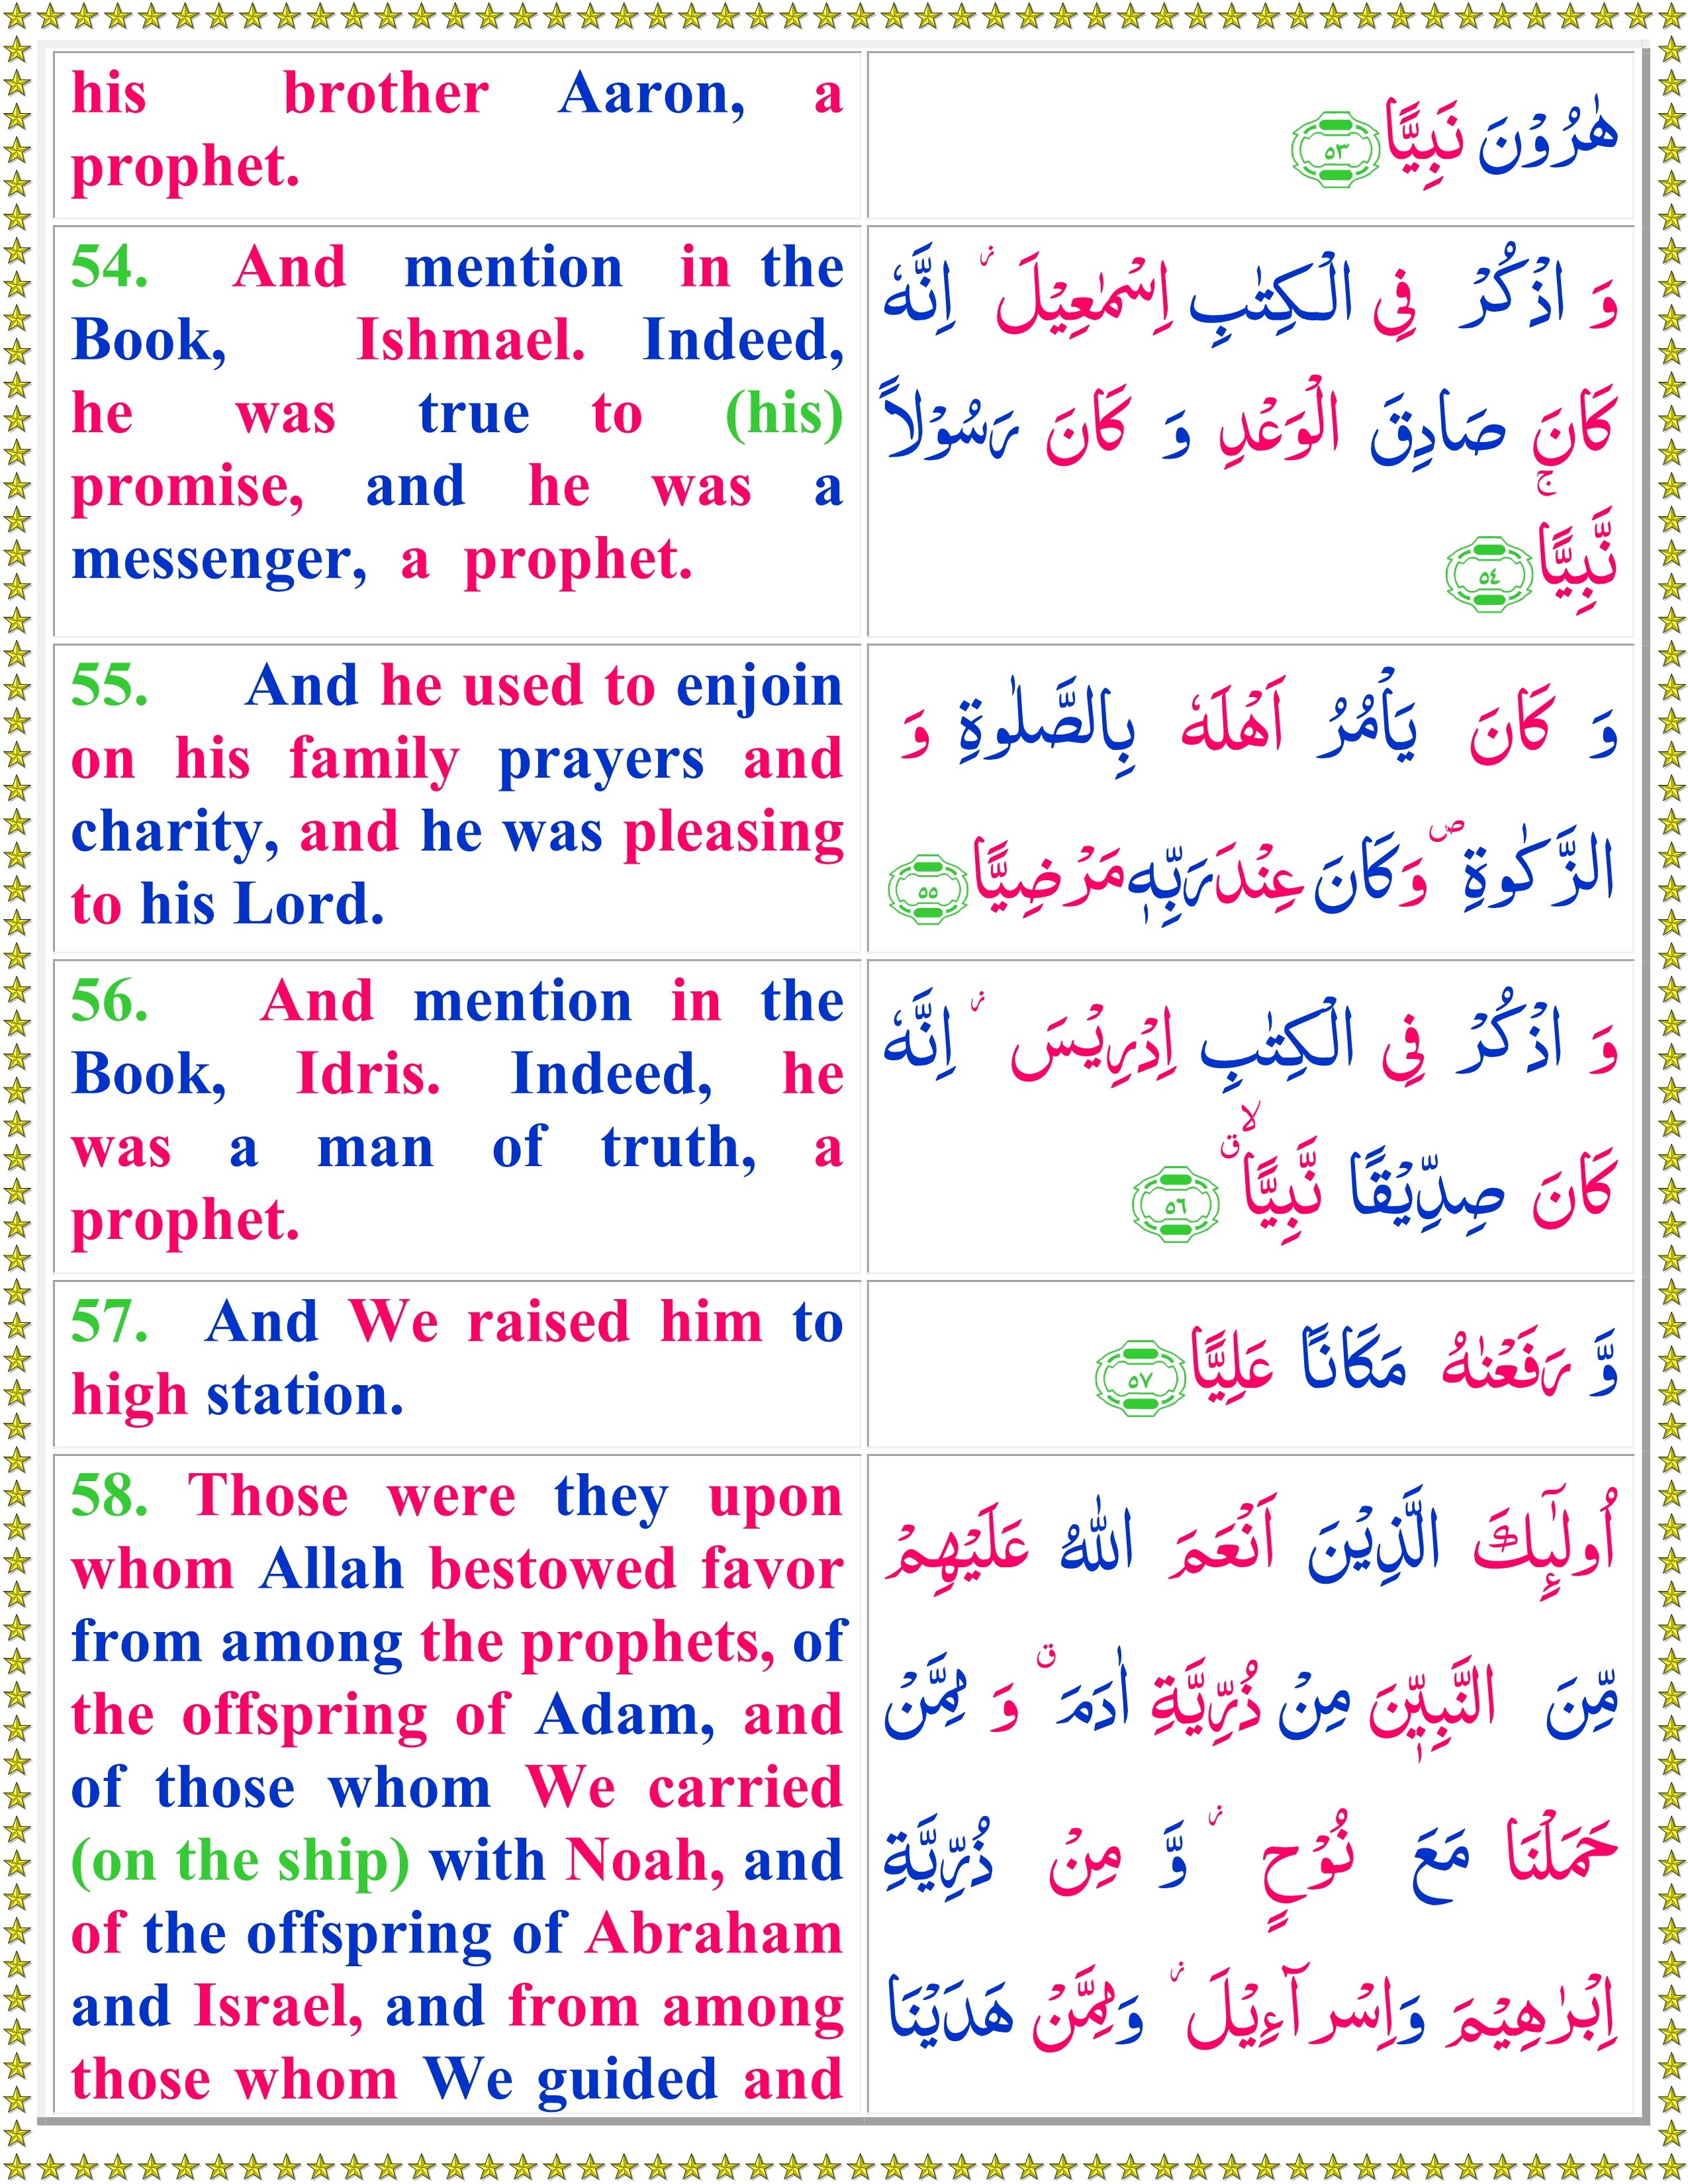 his brother Aaron, a
prophet.
هٰرُوْنَ نَبِيًّا ٥٣
54. And mention in the
Book, Ishmael. Indeed,
he was true to (his)
promise, and he was a
messenger, a prophet.
وَ اذْكُرْ فِى الْكِتٰبِ اِسْمٰعِيْلَ ۫ اِنَّهٗ
كَانَ صَادِقَ الْوَعْدِ وَ كَانَ رَسُوْلاً
نَّبِيًّا ۚ ٥٤
55. And he used to enjoin
on his family prayers and
charity, and he was pleasing
to his Lord.
وَ كَانَ يَاْمُرُ اَهْلَهٗ بِالصَّلٰوةِ وَ
الزَّكٰوةِ ۪ وَكَانَ عِنْدَ رَبِّهٖ مَرْضِيًّا ٥٥
56. And mention in the
Book, Idris. Indeed, he
was a man of truth, a
prophet.
وَ اذْكُرْ فِى الْكِتٰبِ اِدْرِيْسَ ۫ اِنَّهٗ
كَانَ صِدِّيْقًا نَّبِيًّا ۗۙ ٥٦
57. And We raised him to
high station.
وَّ رَفَعْنٰهُ مَكَانًا عَلِيًّا ٥٧
58. Those were they upon
whom Allah bestowed favor
from among the prophets, of
the offspring of Adam, and
of those whom We carried
(on the ship) with Noah, and
of the offspring of Abraham
and Israel, and from among
those whom We guided and
اُولٰٓٮِٕكَ الَّذِيْنَ اَنْعَمَ اللّٰهُ عَلَيْهِمْ
مِّنَ النَّبِيّٖنَ مِنْ ذُرِّيَّةِ اٰدَمَ ۗ وَ مِمَّنْ
حَمَلْنَا مَعَ نُوْحٍ ۫ وَّ مِنْ ذُرِّيَّةِ
اِبْرٰهِيْمَ وَاِسْرَآءِيْلَ ۫ وَمِمَّنْ هَدَيْنَا